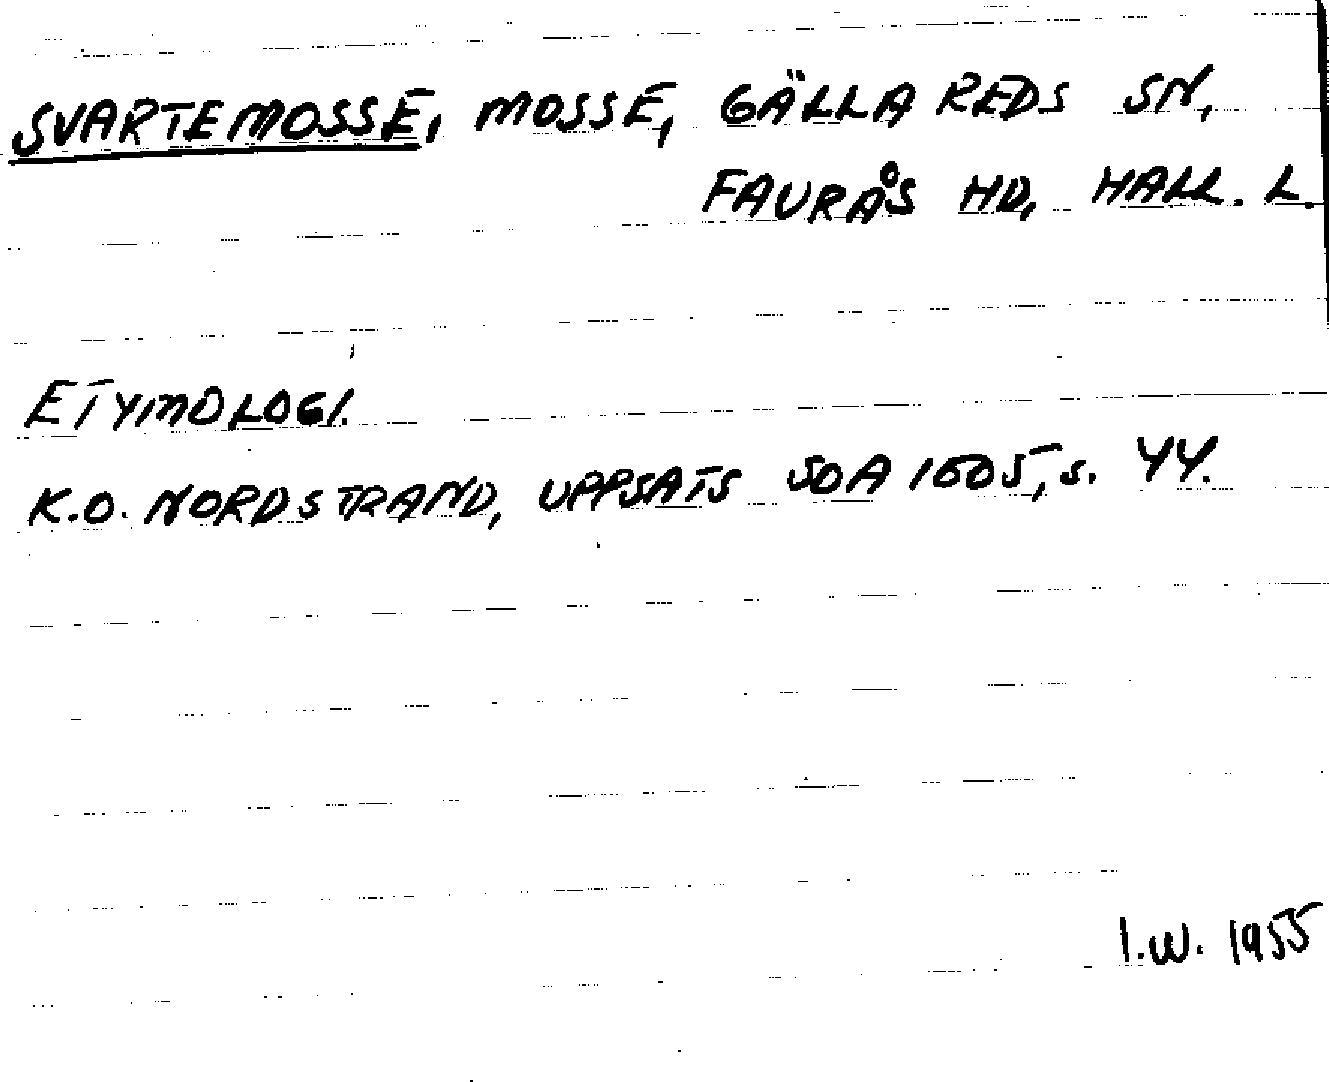 SVARTEMOSSE, MOSSE, GÄLLAREDS SN,
FAURÅS HD, HALL. L.
ETYMOLOGI.
K.O. NORDSTRAND, UPPSATS SOA 1605, s. 44.
I.W. 1955